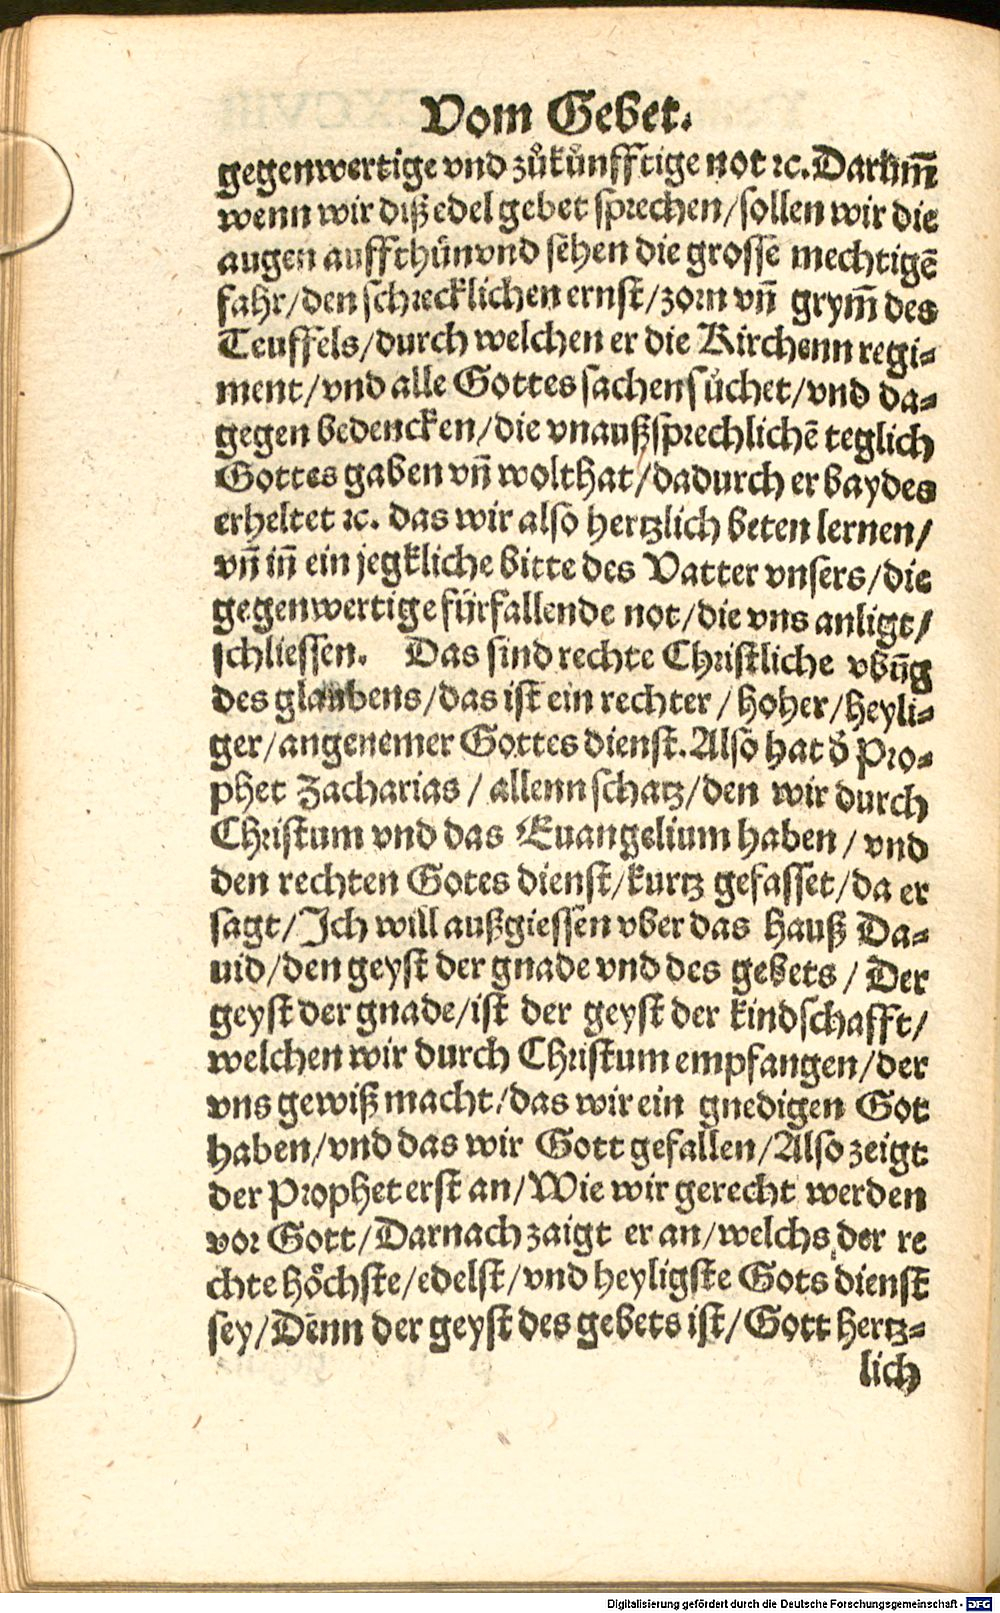 Vom Gebet.
gegenwertige vnd zůkünfftige not ꝛc. Darum̃
wenn wir diß edel gebet sprechen/sollen wir die
augen auffthůn vnd sehen die grosse mechtigẽ
fahr/den schrecklichen ernst/zorn vñ grym̃ des
Teuffels/durch welchen er die Kirchenn regi-
ment/vnd alle Gottes sachen sůchet/vnd da-
gegen bedencken/die vnaußsprechlichẽ teglich
Gottes gaben vñ wolthat/dadurch er baydes
erheltet ꝛc. das wir also hertzlich beten lernen/
vñ iñ ein jegkliche bitte des Vatter vnsers/die
gegenwertige fürfallende not/die vns anligt/
schliessen. Das sind rechte Christliche vbũg
des glaubens/das ist ein rechter/hoher/heyli-
ger/angenemer Gottes dienst. Also hat d̕ Pro-
phet Zacharias/allenn schatz/den wir durch
Christum vnd das Euangelium haben/vnd
den rechten Gotes dienst/kurtz gefasset/da er
sagt/Ich will außgiessen vber das hauß Da-
uid/den geyst der gnade vnd des gebets/Der
geyst der gnade/ist der geyst der kindschafft/
welchen wir durch Christum empfangen/der
vns gewiß macht/das wir ein gnedigen Got
haben/vnd das wir Gott gefallen/Also zeigt
der Prophet erst an/Wie wir gerecht werden
vor Gott/Darnach zaigt er an/welchs der re
chte höchste/edelst/vnd heyligste Gots dienst
sey/Denn der geyst des gebets ist/Gott hertz-
lich
Digitalisierung gefördert durch die Deutsche Forschungsgemeinschaft - DFG